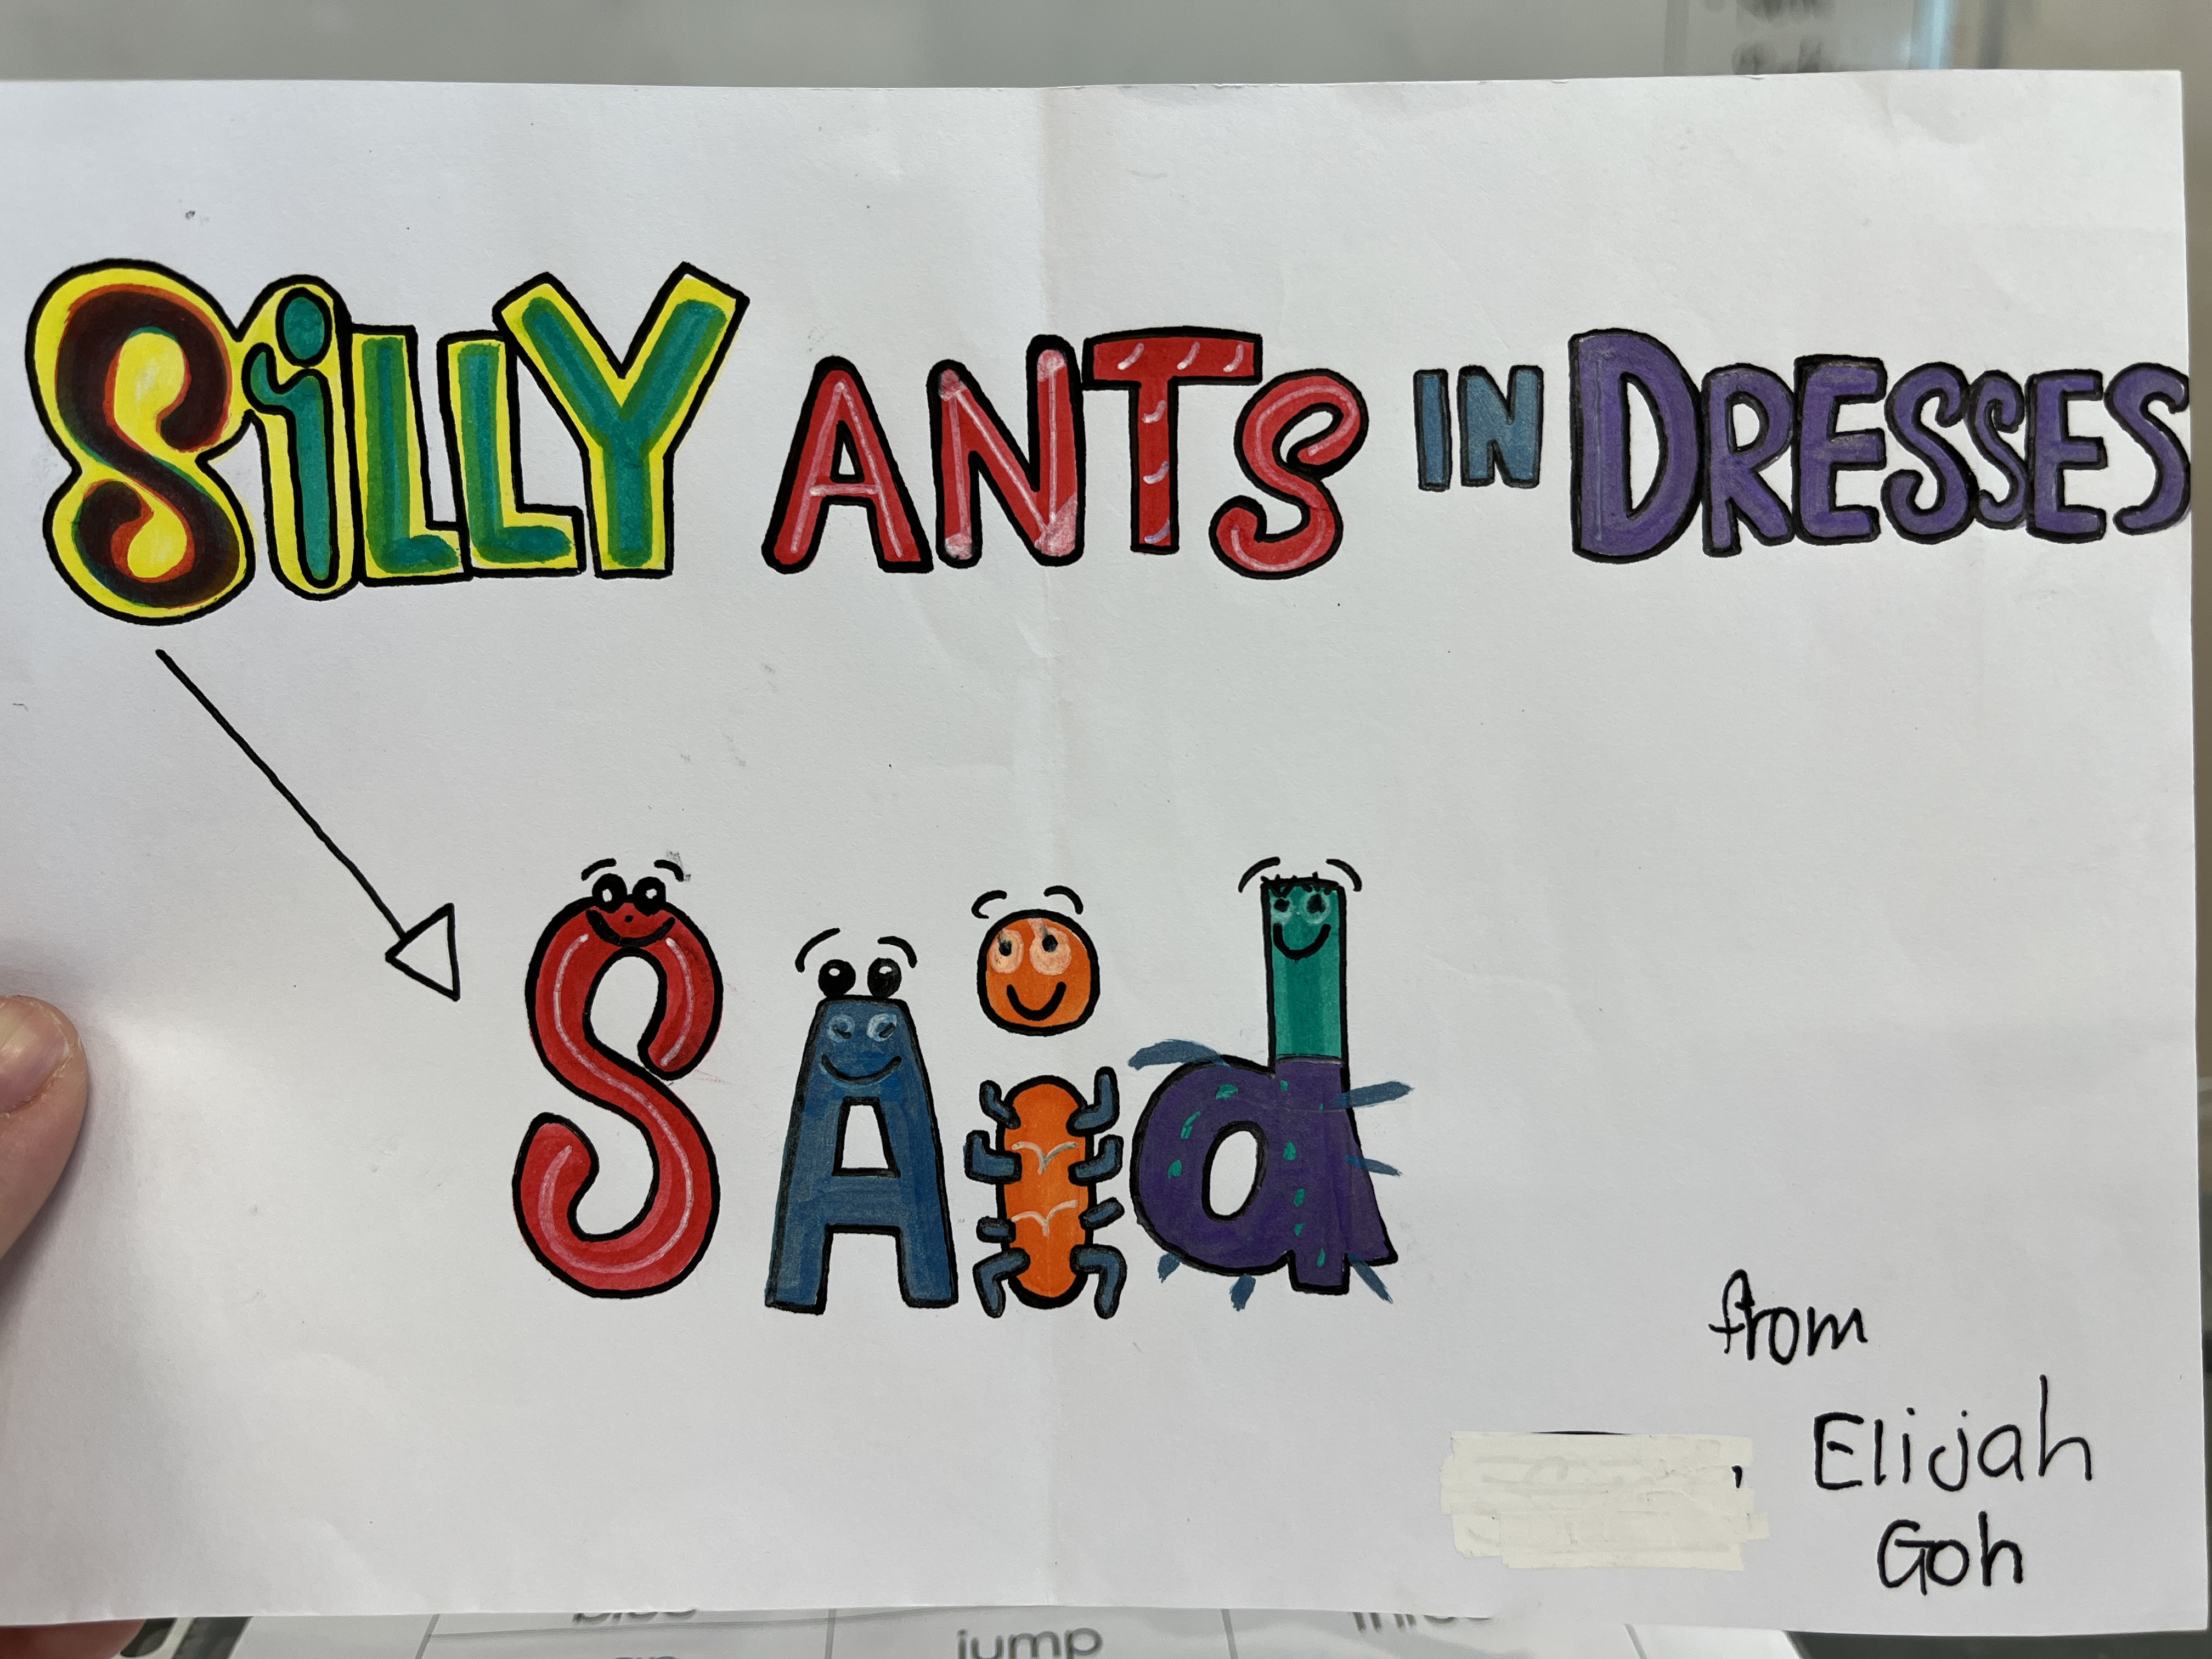 SiLLY ANTS IN DRESSES
SAid
from
, Elijah
Goh
jump